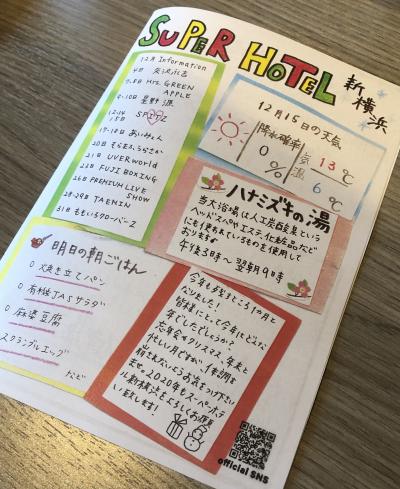 SUPER HOTEL
新横浜
12月 Information
4日 矢沢永吉
7-8日 Mrs. GREEN
APPLE
9-10日 星野源
12-14
15日 SPITZ
17-18日 あいみょん
20日 そらまふうらさか
21日 UVERworld
22日 FUJI BOXING
26日 PREMIUM LIVE
SHOW
28-29日 TAEMIN
31日 ももいろクローバーZ
12月15日の天気
降水確率
0
%
気温
13℃
6℃
ハナミズキの湯
当大浴場は人工炭酸泉という
ヘッドスパやエステ、化粧品など
にも使われているものを使用して
おります♪
午後3時〜翌朝9時
明日の朝ごはん
○ 焼き立てパン
○ 有機JASサラダ
○ 麻婆豆腐
スクランブルエッグ
など
今年も残すところ1か月と
なりました!
皆様にとって今年はどんな
年でしたでしょうか?
忘年会やクリスマス、年末と
忙しい月ですが、体調を
崩されないようお気をつけ下さい
2020年もスーパーホテ
ル新横浜をよろしくお願
い致します!
official SNS